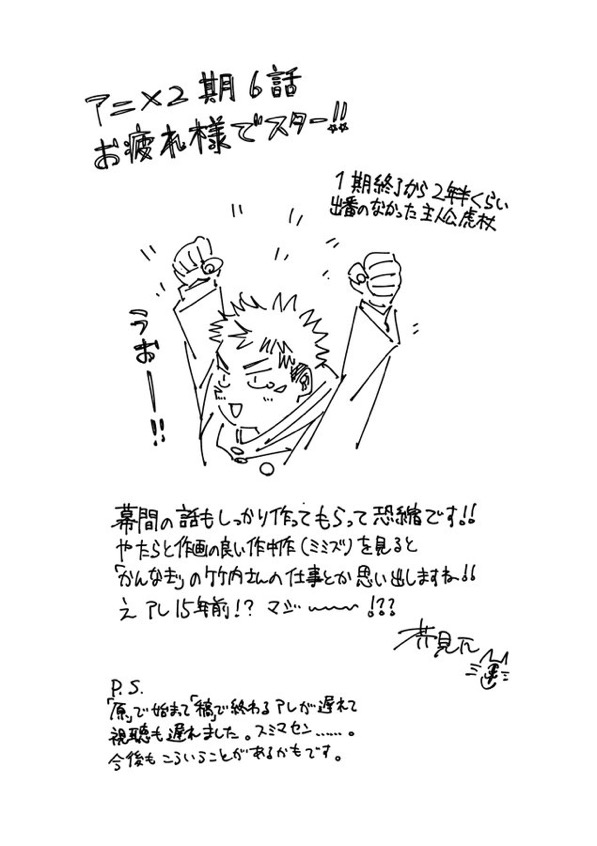 アニメ2期6話
お疲れ様でスター!!
1期終了から2年半くらい
出番のなかった主人公虎杖
うおー!!
幕間の話もしっかり作ってもらって恐縮です!!
やたらと作画の良い作中作(ミミズ)を見ると
「かんなぎ」の竹内さんの仕事とか思い出しますね!!
え アレ15年前!? マジ〜〜!??
芥見下々
P.S.
「原」で始まって「稿」で終わるアレが遅れて
視聴も遅れました。スミマセン……。
今後もこういうことがあるかもです。